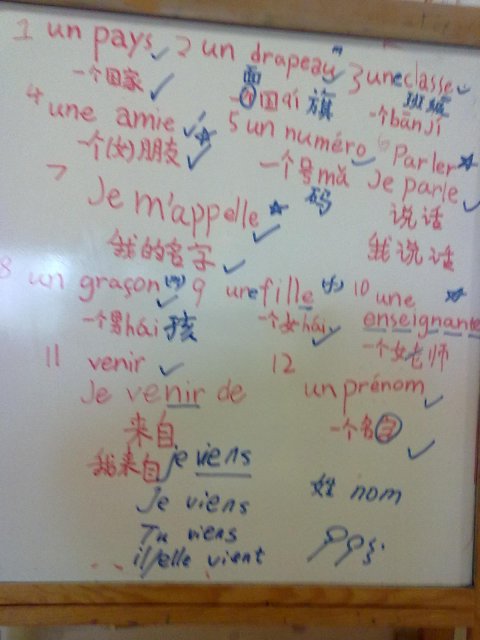 1 un pays ✓ 2 un drapeau ✓ 3 une classe ✓
一个国家 ✓ 面
一个国qí 旗 班级
一个bānjí
4 une amie ✓ 5 un numéro ✓ 6 Parler
一个(女)朋友 ✓ 一个号mǎ Je parle ✓
码 说话
7 Je m'appelle ✓ 我说话
我的名字 ✓
8 un graçon ✓ 9 une fille 10 une
enseignante
一个男hái 孩 一个女hái ✓ 一个女老师
11 venir ✓ 12 un prénom ✓
Je venir de 一个名字 ✓
来自
我来自 je viens
Je viens 姓 nom
Tu viens
il/elle vient